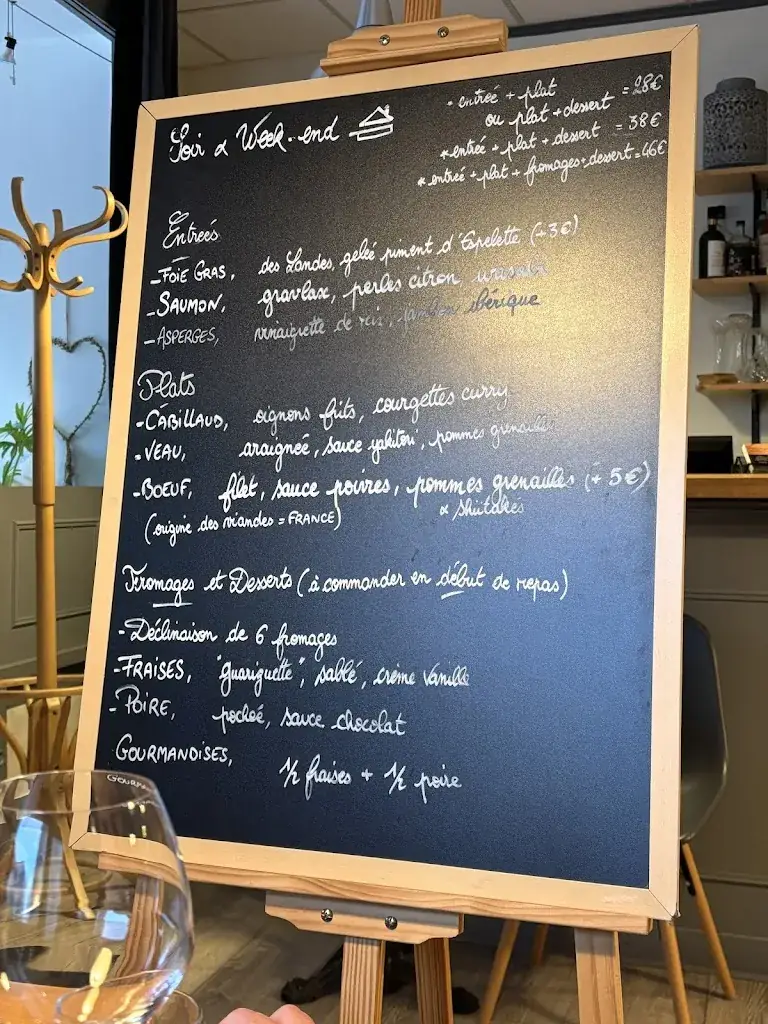 Soir & Week-end
* entrée + plat
ou plat + dessert = 28€
* entrée + plat + dessert = 38€
* entrée + plat + fromages + dessert = 46€
Entrées
- FOIE GRAS, des Landes, gelée piment d'Espelette (+3€)
- SAUMON, gravlax, perles citron wasabi
- ASPERGES, vinaigrette de jambon ibérique
Plats
- CABILLAUD, oignons frits, courgettes curry
- VEAU, araignée, sauce yakitori, pommes grenailles
- BOEUF, filet, sauce poivres, pommes grenailles (+ 5€)
& Shiitakés
(origine des viandes = FRANCE)
Fromages et Desserts (à commander en début de repas)
- Déclinaison de 6 fromages
- FRAISES, "guariguette", sablé, crème vanille
- POIRE, pochée, sauce chocolat
GOURMANDISES, 1/2 fraises + 1/2 poire